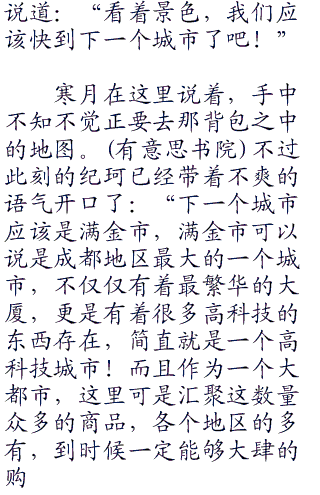 说道：“看着景色，我们应
该快到下一个城市了吧！”
寒月在这里说着，手中
不知不觉正要去那背包之中
的地图。(有意思书院)不过
此刻的纪珂已经带着不爽的
语气开口了：“下一个城市
应该是满金市，满金市可以
说是成都地区最大的一个城
市，不仅仅有着最繁华的大
厦，更是有着很多高科技的
东西存在，简直就是一个高
科技城市！而且作为一个大
都市，这里可是汇聚这数量
众多的商品，各个地区的多
有，到时候一定能够大肆的
购